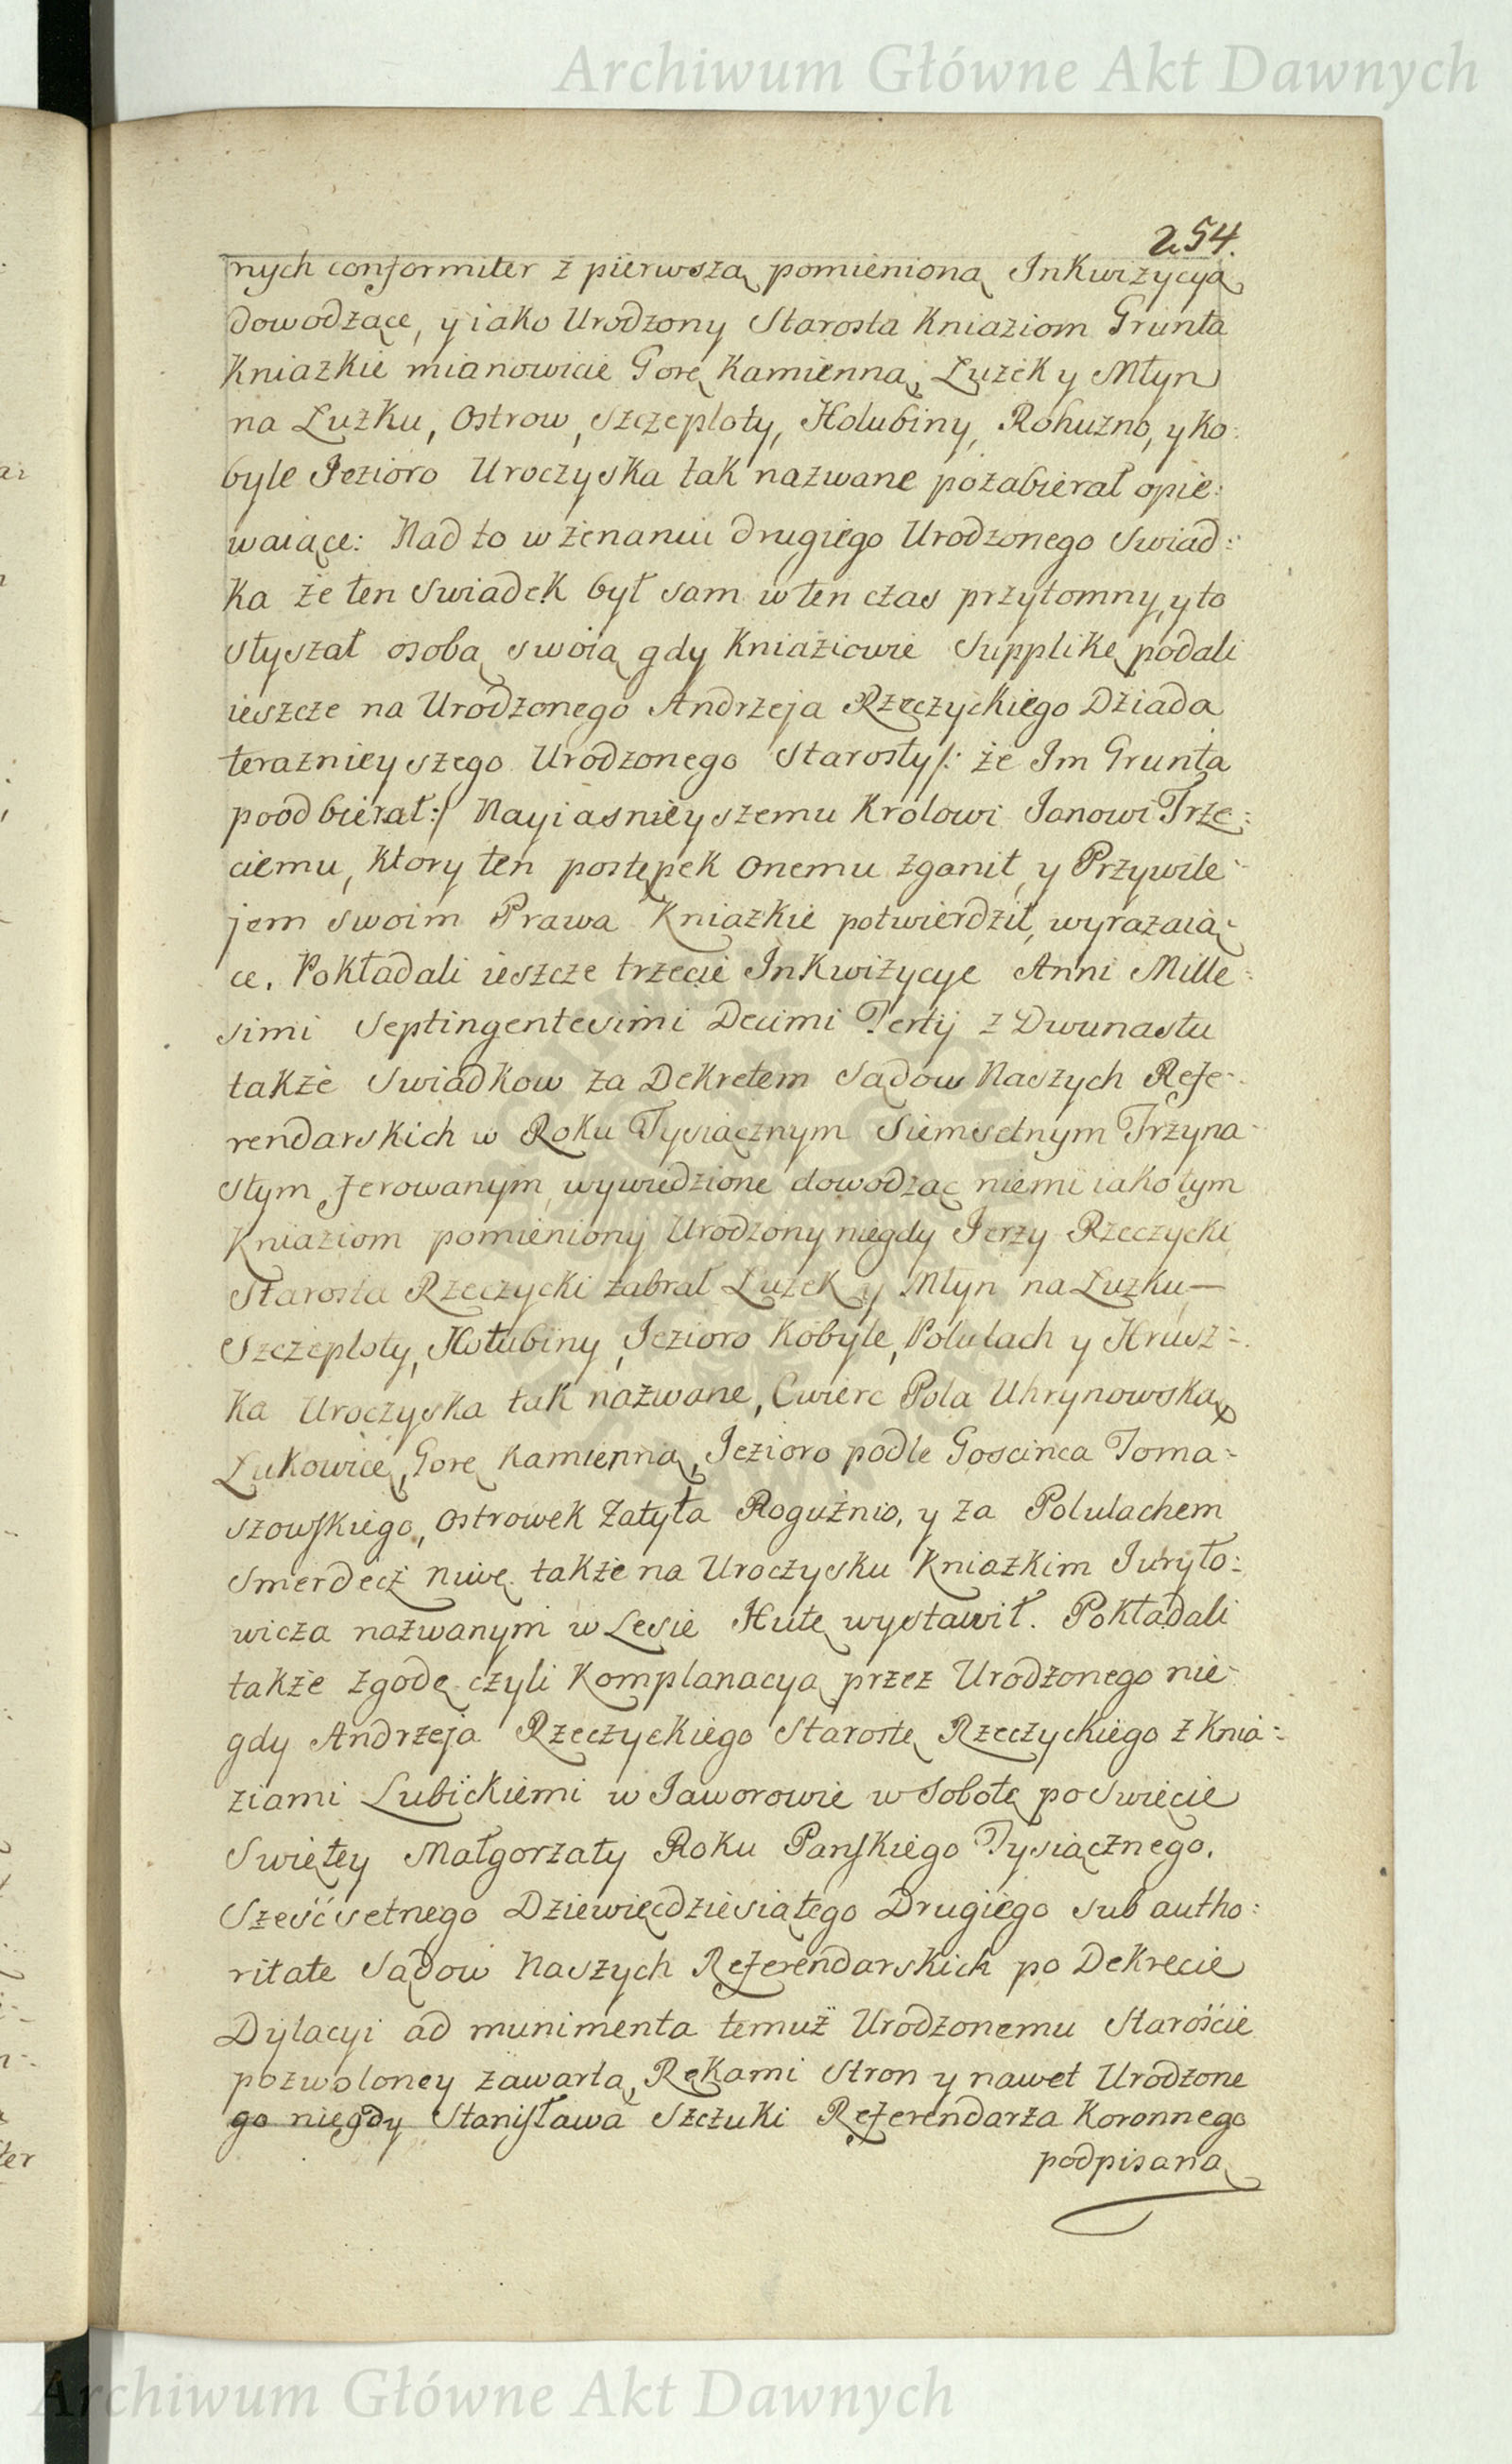 Archiwum Główne Akt Dawnych
254.
nych conformiter z pierwszą pomienioną Inkwizycyą
dowodzące, y iako Urodzony Starosta Kniaziom Grunta
Kniazkie mianowicie Gorę Kamienną, Luzek y Młyn
na Luzku, Ostrow, Szczeploty, Holubiny, Rohuzno, y Ko:
byle Jezioro Uroczyska tak nazwane pozabierał opie:
waiące: Nad to w zenaniu drugiego Urodzonego Swiad:
ka że ten Swiadek był sam w ten czas przytomny, y to
słyszał osobą swoią gdy Kniaziowie Supplikę podali
ieszcze na Urodzonego Andrzeja Rzeczyckiego Dziada
teraznieyszego Urodzonego Starosty /: że Im Grunta
poodbierał:/ Nayiasnieyszemu Krolowi Janowi Trze:
ciemu, ktory ten postępek onemu zganił, y Przywile:
jem swoim Prawa Kniazkie potwierdził, wyrazaią:
ce. Pokładali ieszcze trzecie Inkwizycye Anni Mille:
simi Septingentesimi Decimi Tertij z Dwunastu
także Swiadkow za Dekretem Sądow Naszych Refe:
rendarskich w Roku Tysiącznym Siemsetnym Trzyna:
stym ferowanym wywiedzione dowodząc niemi iako tym
Kniaziom pomieniony Urodzony niegdy Jerzy Rzeczycki
Starosta Rzeczycki zabrał Luzek y Młyn na Luzku —
Szczeploty, Hołubiny, Jezioro Kobyle, Polulach y Hrusz:
ka Uroczyska tak nazwane, Cwierc Pola Uhrynowską
Lukowicę, Gorę Kamienną, Jezioro podle Goscinca Toma:
szowskiego, Ostrowek Zatyła Roguźnio, y za Polulachem
Smerdecz niwę także na Uroczysku Kniazkim Juryło:
wicza nazwanym w Lesie Hutę wystawił. Pokładali
także zgodę czyli Komplanacyą przez Urodzonego nie:
gdy Andrzeja Rzeczyckiego Starostę Rzeczyckiego z Knia:
ziami Lubickiemi w Jaworowie w Sobotę po Swięcie
Swiętey Małgorzaty Roku Panskiego Tysiącznego.
Sześćsetnego Dziewięcdziesiątego Drugiego sub autho:
ritate Sądow Naszych Referendarskich po Dekrecie
Dylacyi ad munimenta temuż Urodzonemu Staroście
pozwoloney zawartą, Rękami Stron y nawet Urodzone
go niegdy Stanisława Szczuki Referendarza Koronnego
podpisaną
Archiwum Główne Akt Dawnych